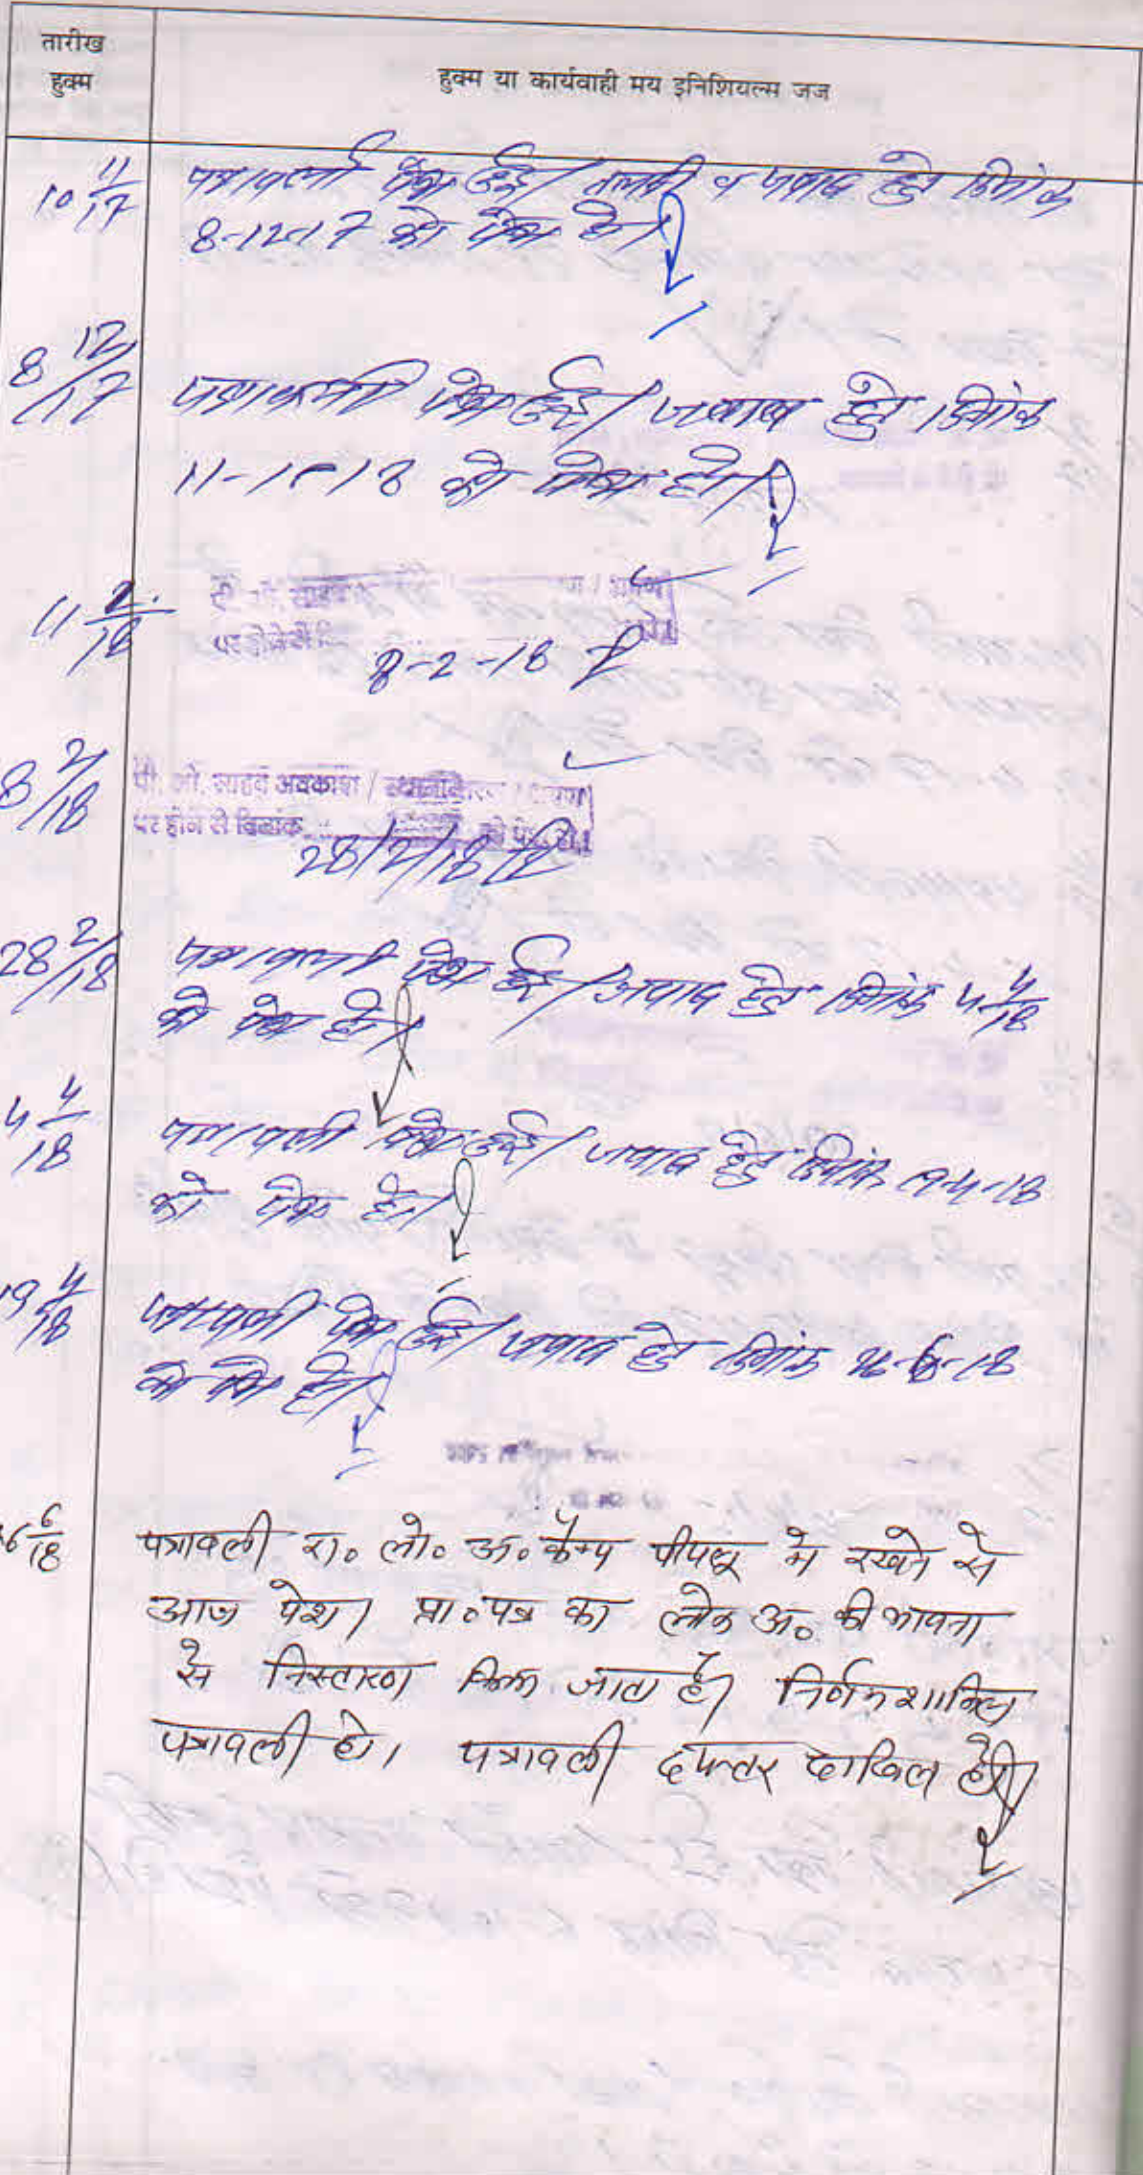 तारीख
हुक्म
हुक्म या कार्यवाही मय इनिशियल्स जज
10 11/17 पत्रावली पेश हुई। तलबी व जवाब हेतु दिनांक
8-12-17 को पेश हो।
8 12/17 पत्रावली पेश हुई। जवाब हेतु दिनांक
11-1-18 को पेश हो।
पर होने से
8-2-18
8 2/18 पी. ओ. साहब अवकाश /
पर होने से दिनांक को पेश हो।
28/2/18
28 2/18 पत्रावली पेश हुई। जवाब हेतु दिनांक 4 4/18
को पेश हो।
4 4/18 पत्रावली पेश हुई। जवाब हेतु दिनांक 19-4-18
को पेश हो।
19 4/18 पत्रावली पेश हुई। जवाब हेतु दिनांक
को पेश हो।
6/18 पत्रावली रा० लो० अ० कैम्प पीपलू में रखने से
आज पेश। प्रा० पत्र का लोक अ० की भावना
से निस्तारण किया जाता है। निर्णय शामिल
पत्रावली हो। पत्रावली दफ्तर दाखिल हो।